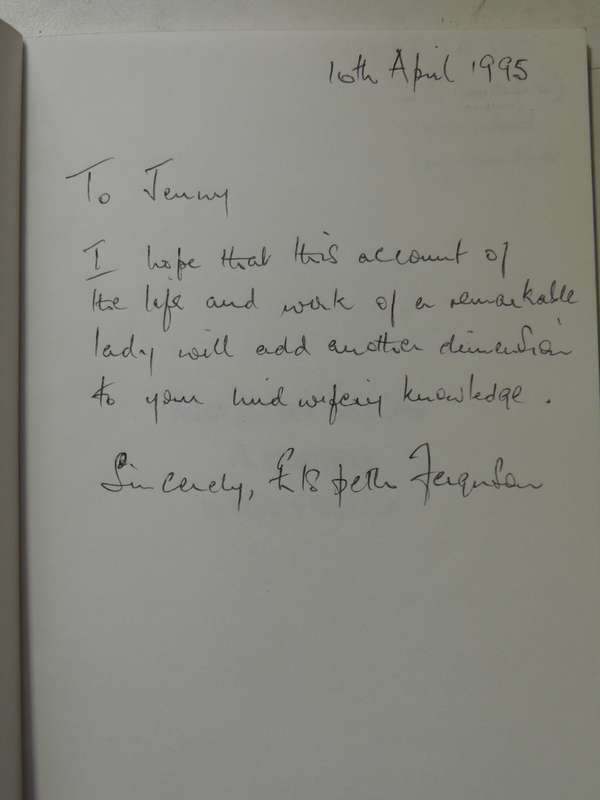 10th April 1995
To Jenny
I hope that this account of
the life and work of a remarkable
lady will add another dimension
to your midwifery knowledge.
Sincerely, Elspeth Ferguson